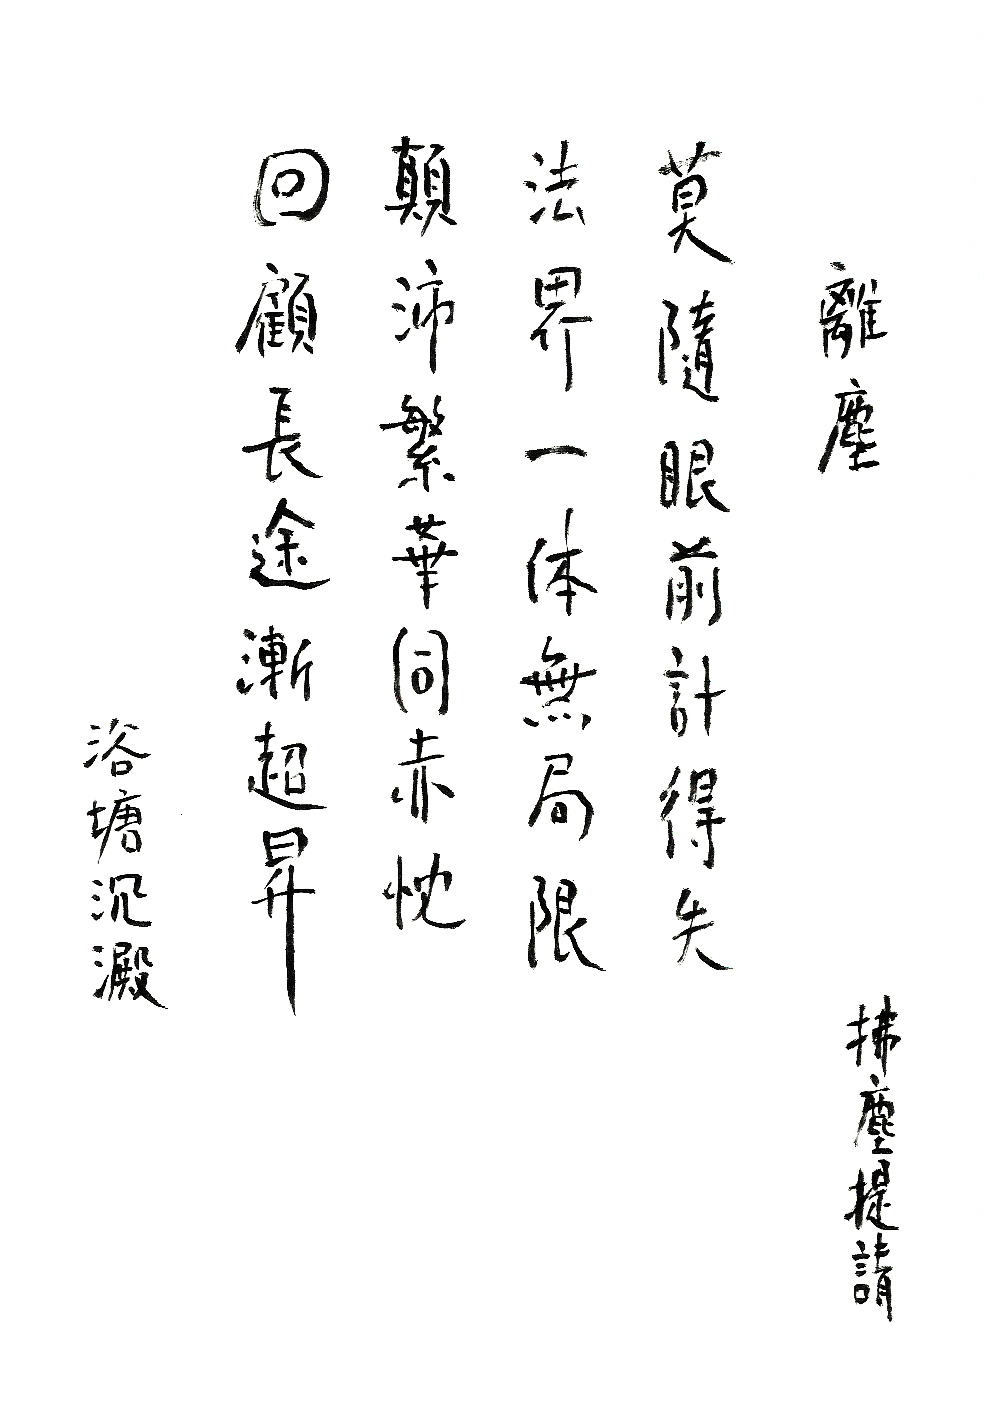 離塵
拂塵提請
莫隨眼前計得失
法界一体無局限
顛沛繁華同赤忱
回顧長途漸超昇
浴塘沉澱